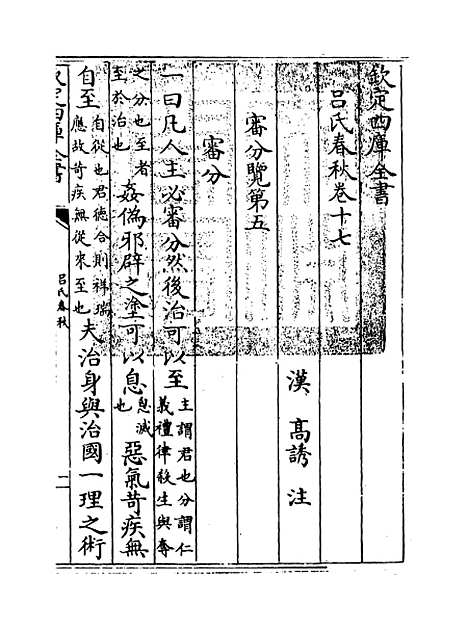 欽定四庫全書
呂氏春秋卷十七
漢 高誘 注
審分覽第五
審分
一曰凡人主必審分然後治可以至主謂君也分謂仁義禮律殺生與奪
之分也至者至於治也姦偽邪辟之塗可以息息滅也惡氣苛疾無
自至自從也君德合則祥瑞應故苛疾無從來至也夫治身與治國一理之術
呂氏春秋